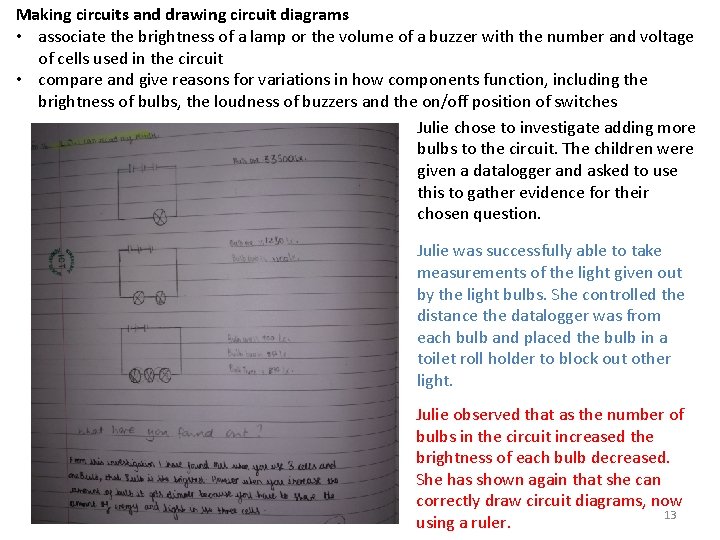 Making circuits and drawing circuit diagrams
• associate the brightness of a lamp or the volume of a buzzer with the number and voltage
of cells used in the circuit
• compare and give reasons for variations in how components function, including the
brightness of bulbs, the loudness of buzzers and the on/off position of switches
Julie chose to investigate adding more
bulbs to the circuit. The children were
given a datalogger and asked to use
this to gather evidence for their
chosen question.
Julie was successfully able to take
measurements of the light given out
by the light bulbs. She controlled the
distance the datalogger was from
each bulb and placed the bulb in a
toilet roll holder to block out other
light.
Julie observed that as the number of
bulbs in the circuit increased the
brightness of each bulb decreased.
She has shown again that she can
correctly draw circuit diagrams, now
using a ruler.
13
Bulb one
Bulb one
Bulb
Bulb
Bulb
Bulb
what have you found out?
From this investigation I have found that when you use 3 cells and
one Bulb, that Bulb is the brightest. However when you increase the
amount of bulb it gets dimmer because you have to share the
amount of energy and light in the three cells.